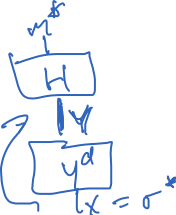 m*
H
Y
yd
x = σ*